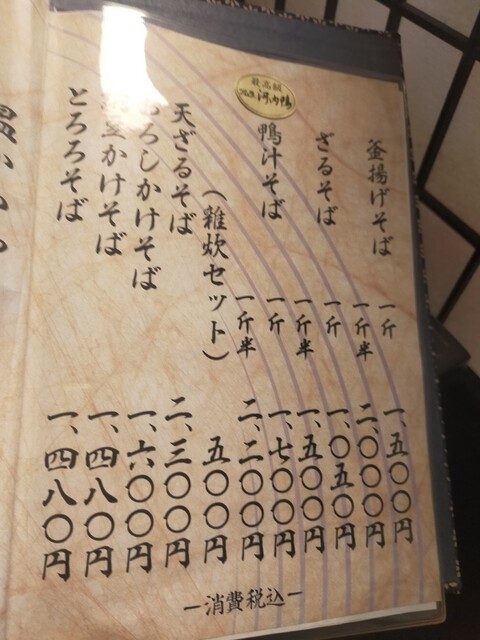 釜揚げそば 一斤 一、五〇〇円
一斤半 二、〇〇〇円
ざるそば 一斤 一、〇五〇円
一斤半 一、五〇〇円
最高級
河内鴨
鴨汁そば 一斤 一、七〇〇円
一斤半 二、二〇〇円
（雑炊セット） 五〇〇円
天ざるそば 二、三〇〇円
ろしかけそば 一、六〇〇円
かけそば 一、四八〇円
とろろそば 一、四八〇円
―消費税込―